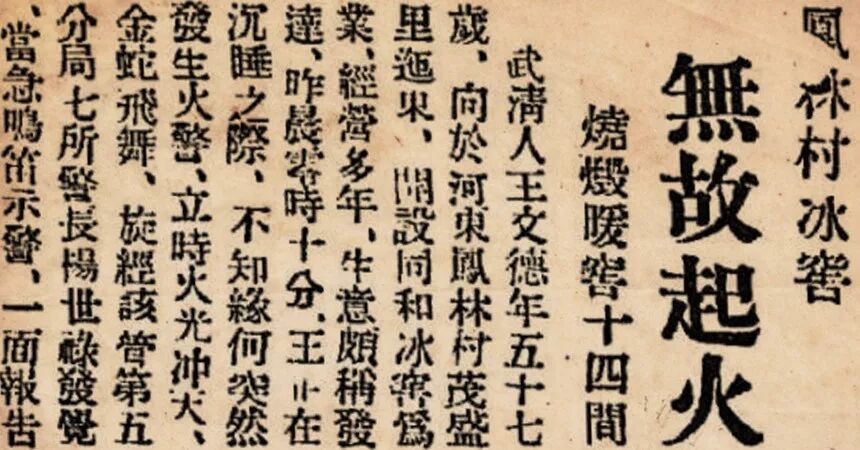 鳳林村冰窖
無故起火
燒燬暖窖十四間
武淸人王文德年五十七
歲、向於河東鳳林村茂盛
里迤東、開設同和冰窖爲
業、經營多年、生意頗稱發
達、昨晨零時十分、王正在
沉睡之際、不知緣何突然
發生火警、立時火光冲天、
金蛇飛舞、旋經該管第五
分局七所警長楊世祿發覺
、當急鳴笛示警、一面報告